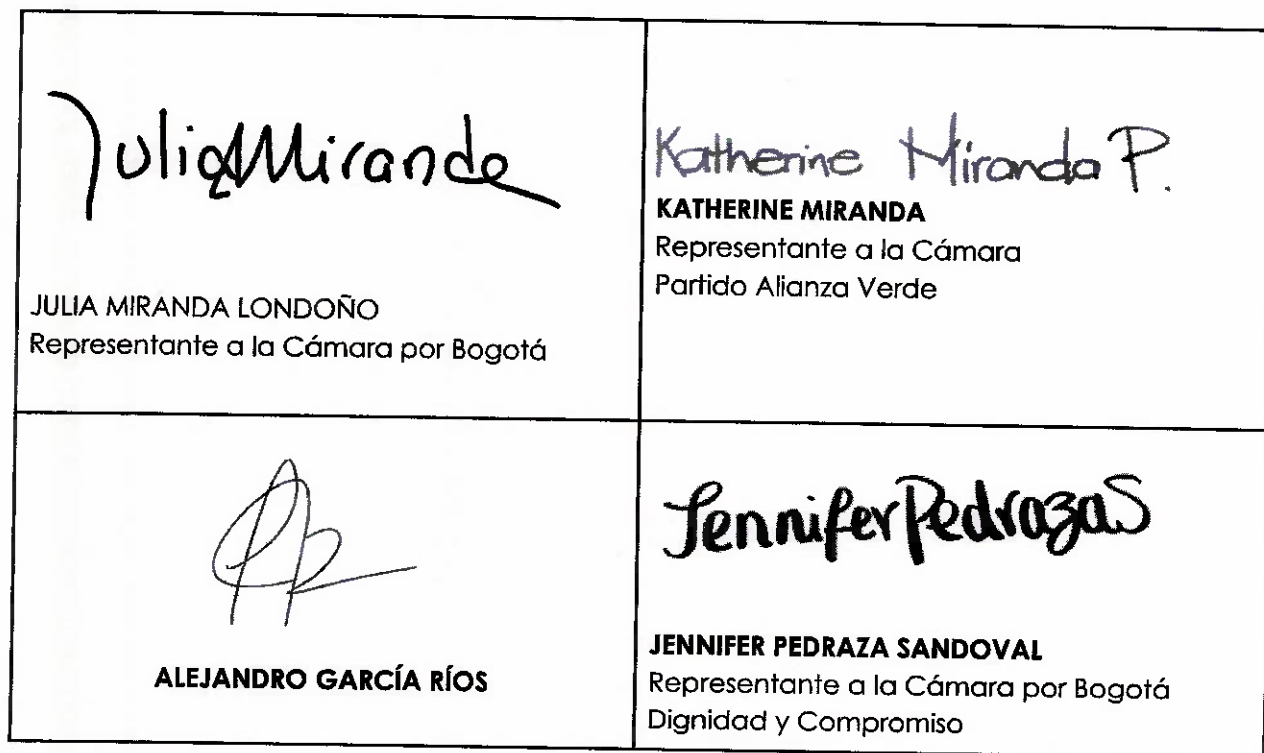 Julia Miranda
JULIA MIRANDA LONDOÑO
Representante a la Cámara por Bogotá
Katherine Miranda P.
KATHERINE MIRANDA
Representante a la Cámara
Partido Alianza Verde
ALEJANDRO GARCÍA RÍOS
Jennifer Pedraza S
JENNIFER PEDRAZA SANDOVAL
Representante a la Cámara por Bogotá
Dignidad y Compromiso